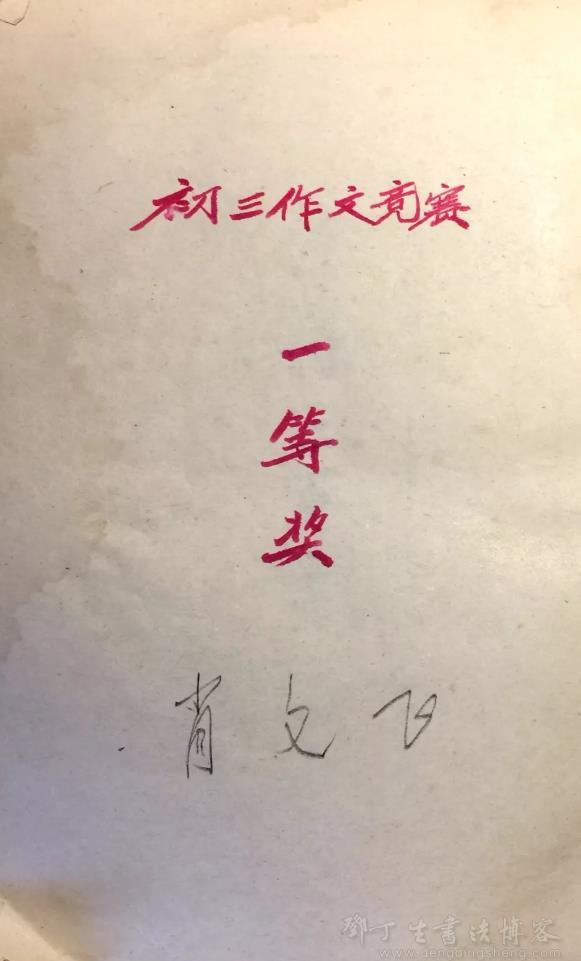 初三作文竞赛
一
等
奖
肖文飞
邓丁生书法博客
www.dengdingsheng.com